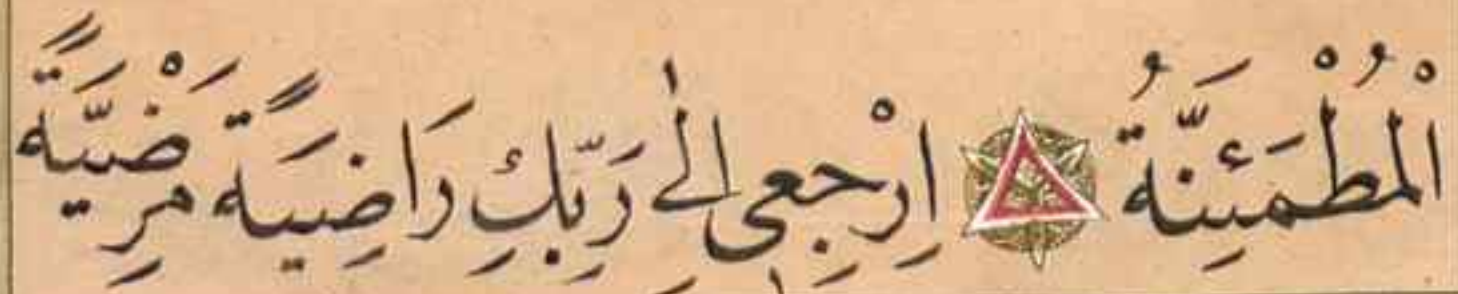 الْمُطْمَئِنَّةُ اِرْجِعِى اِلٰى رَبِّكِ رَاضِيَةً مَرْضِيَّةً